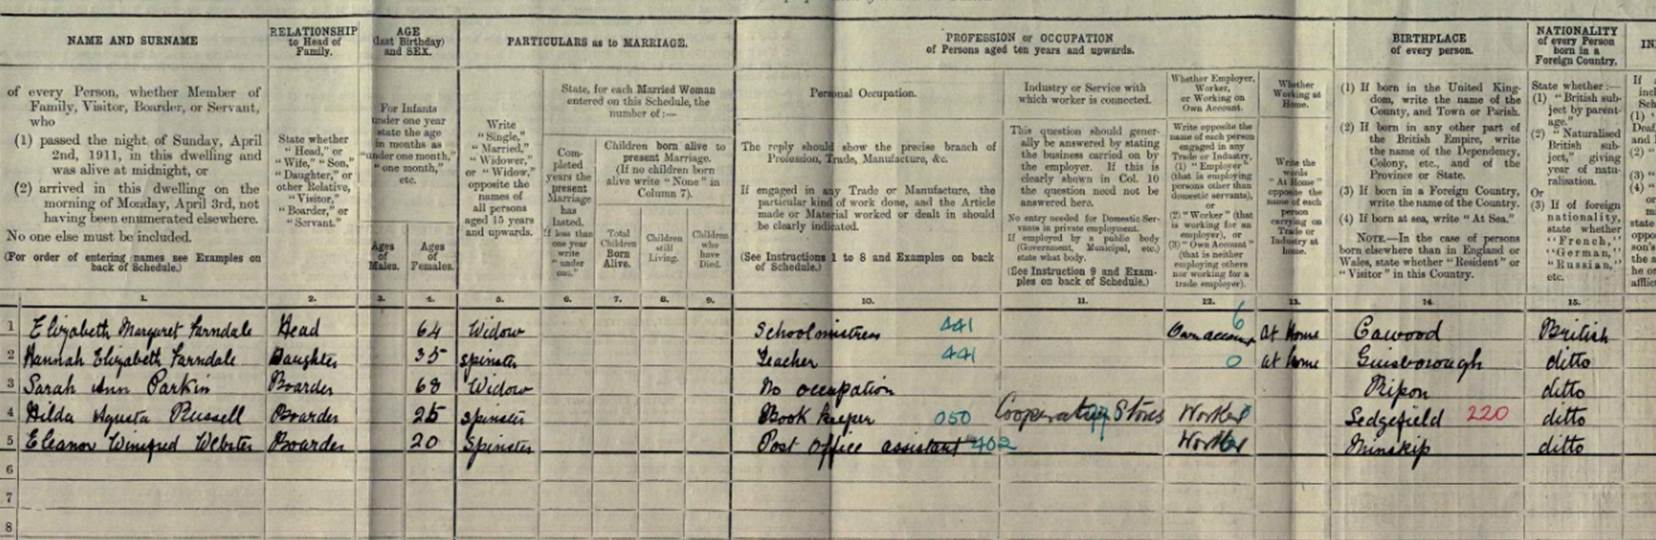 NAME AND SURNAME
RELATIONSHIP
to Head of
Family.
AGE
(last Birthday)
and SEX.
PARTICULARS as to MARRIAGE.
PROFESSION or OCCUPATION
of Persons aged ten years and upwards.
BIRTHPLACE
of every person.
NATIONALITY
of every Person
born in a
Foreign Country.
of every Person, whether Member of
Family, Visitor, Boarder, or Servant,
who
(1) passed the night of Sunday, April
2nd, 1911, in this dwelling and
was alive at midnight, or
(2) arrived in this dwelling on the
morning of Monday, April 3rd, not
having been enumerated elsewhere.
No one else must be included.
(For order of entering names see Examples on
back of Schedule.)
State whether
"Head," or
"Wife," "Son,"
"Daughter," or
other Relative,
"Visitor,"
"Boarder," or
"Servant."
For Infants
under one year
state the age
in months as
"under one month,"
"one month,"
etc.
Ages
of
Males.
Ages
of
Females.
Write
"Single,"
"Married,"
"Widower,"
or "Widow,"
opposite the
names of
all persons
aged 15 years
and upwards.
State, for each Married Woman
entered on this Schedule, the
number of:—
Com-
pleted
years the
present
Marriage
has
lasted.
If less than
one year
write
"under
one."
Children born alive to
present Marriage.
(If no children born
alive write "None" in
Column 7).
Total
Children
Born
Alive.
Children
still
Living.
Children
who
have
Died.
Personal Occupation.
The reply should show the precise branch of
Profession, Trade, Manufacture, &c.
If engaged in any Trade or Manufacture, the
particular kind of work done, and the Article
made or Material worked or dealt in should
be clearly indicated.
(See Instructions 1 to 8 and Examples on back
of Schedule.)
Industry or Service with
which worker is connected.
This question should gener-
ally be answered by stating
the business carried on by
the employer. If this is
clearly shown in Col. 10
the question need not be
answered here.
No entry needed for Domestic Ser-
vants in private employment.
If employed by a public body
(Government, Municipal, etc.)
state what body.
(See Instruction 9 and Exam-
ples on back of Schedule.)
Whether Employer,
Worker,
or Working on
Own Account.
Write opposite the
name of each person
engaged in any
Trade or Industry,
(1) "Employer"
(that is employing
persons other than
domestic servants),
or
(2) "Worker" (that
is working for an
employer), or
(3) "Own Account"
(that is neither
employing others
nor working for a
trade employer).
Whether
Working at
Home.
Write the
words
"At Home"
opposite the
name of each
person
carrying on
Trade or
Industry at
home.
(1) If born in the United King-
dom, write the name of the
County, and Town or Parish.
(2) If born in any other part of
the British Empire, write
the name of the Dependency,
Colony, etc., and of the
Province or State.
(3) If born in a Foreign Country,
write the name of the Country.
(4) If born at sea, write "At Sea."
NOTE.—In the case of persons
born elsewhere than in England or
Wales, state whether "Resident" or
"Visitor" in this Country.
State whether:—
(1) "British sub-
ject by parent-
age."
(2) "Naturalised
British sub-
ject," giving
year of natu-
ralisation.
Or
(3) If of foreign
nationality,
state whether
"French,"
"German,"
"Russian,"
etc.
1. 2. 3. 4. 5. 6. 7. 8. 9. 10. 11. 12. 13. 14. 15.
1 Elizabeth Margaret Farndale Head 64 Widow Schoolmistress 441 Own account 6 At Home Cawood British
2 Hannah Elizabeth Farndale Daughter 35 spinster Teacher 441 0 at home Guisborough ditto
3 Sarah Ann Parkin Boarder 68 Widow No occupation Ripon ditto
4 Hilda Agusta Russell Boarder 25 spinster Book keeper 050 Cooperative Stores Worker Sedgefield 220 ditto
5 Eleanor Winifred Webster Boarder 20 Spinster Post Office assistant 402 Worker Minskip ditto
6
7
8